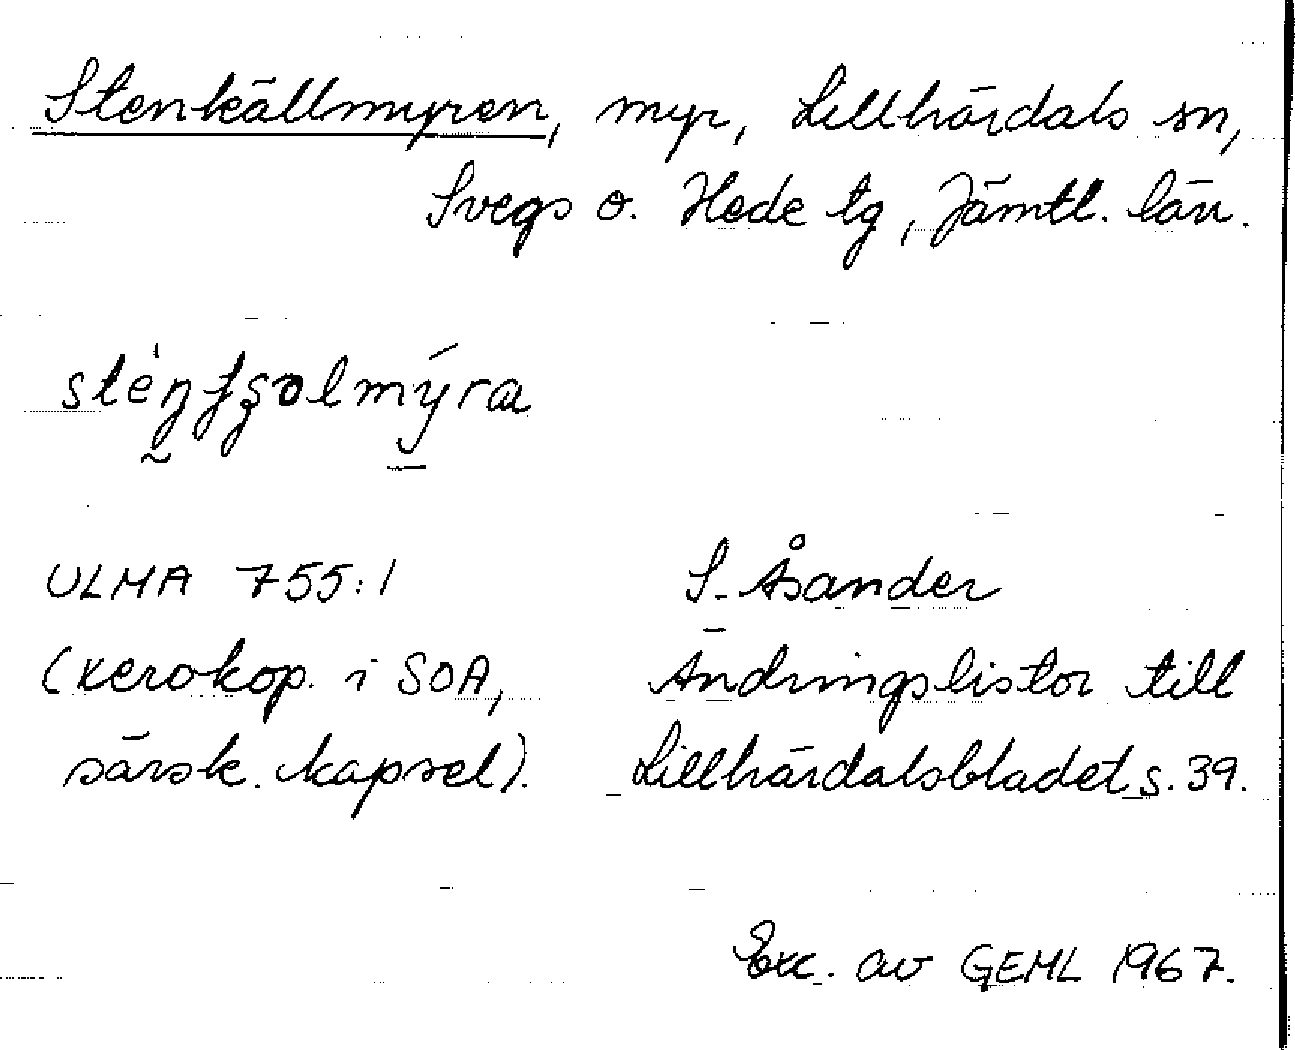 Stenkällmyren, myr, Lillhärdals sn,
Svegs o. Hede tg, Jämtl. län.
ULMA 755:1
S. Åsander
(xerokop. i SOA,
Ändringslistor till
särsk. kapsel).
Lillhärdalsbladet s. 39.
Exc. av GEML 1967.